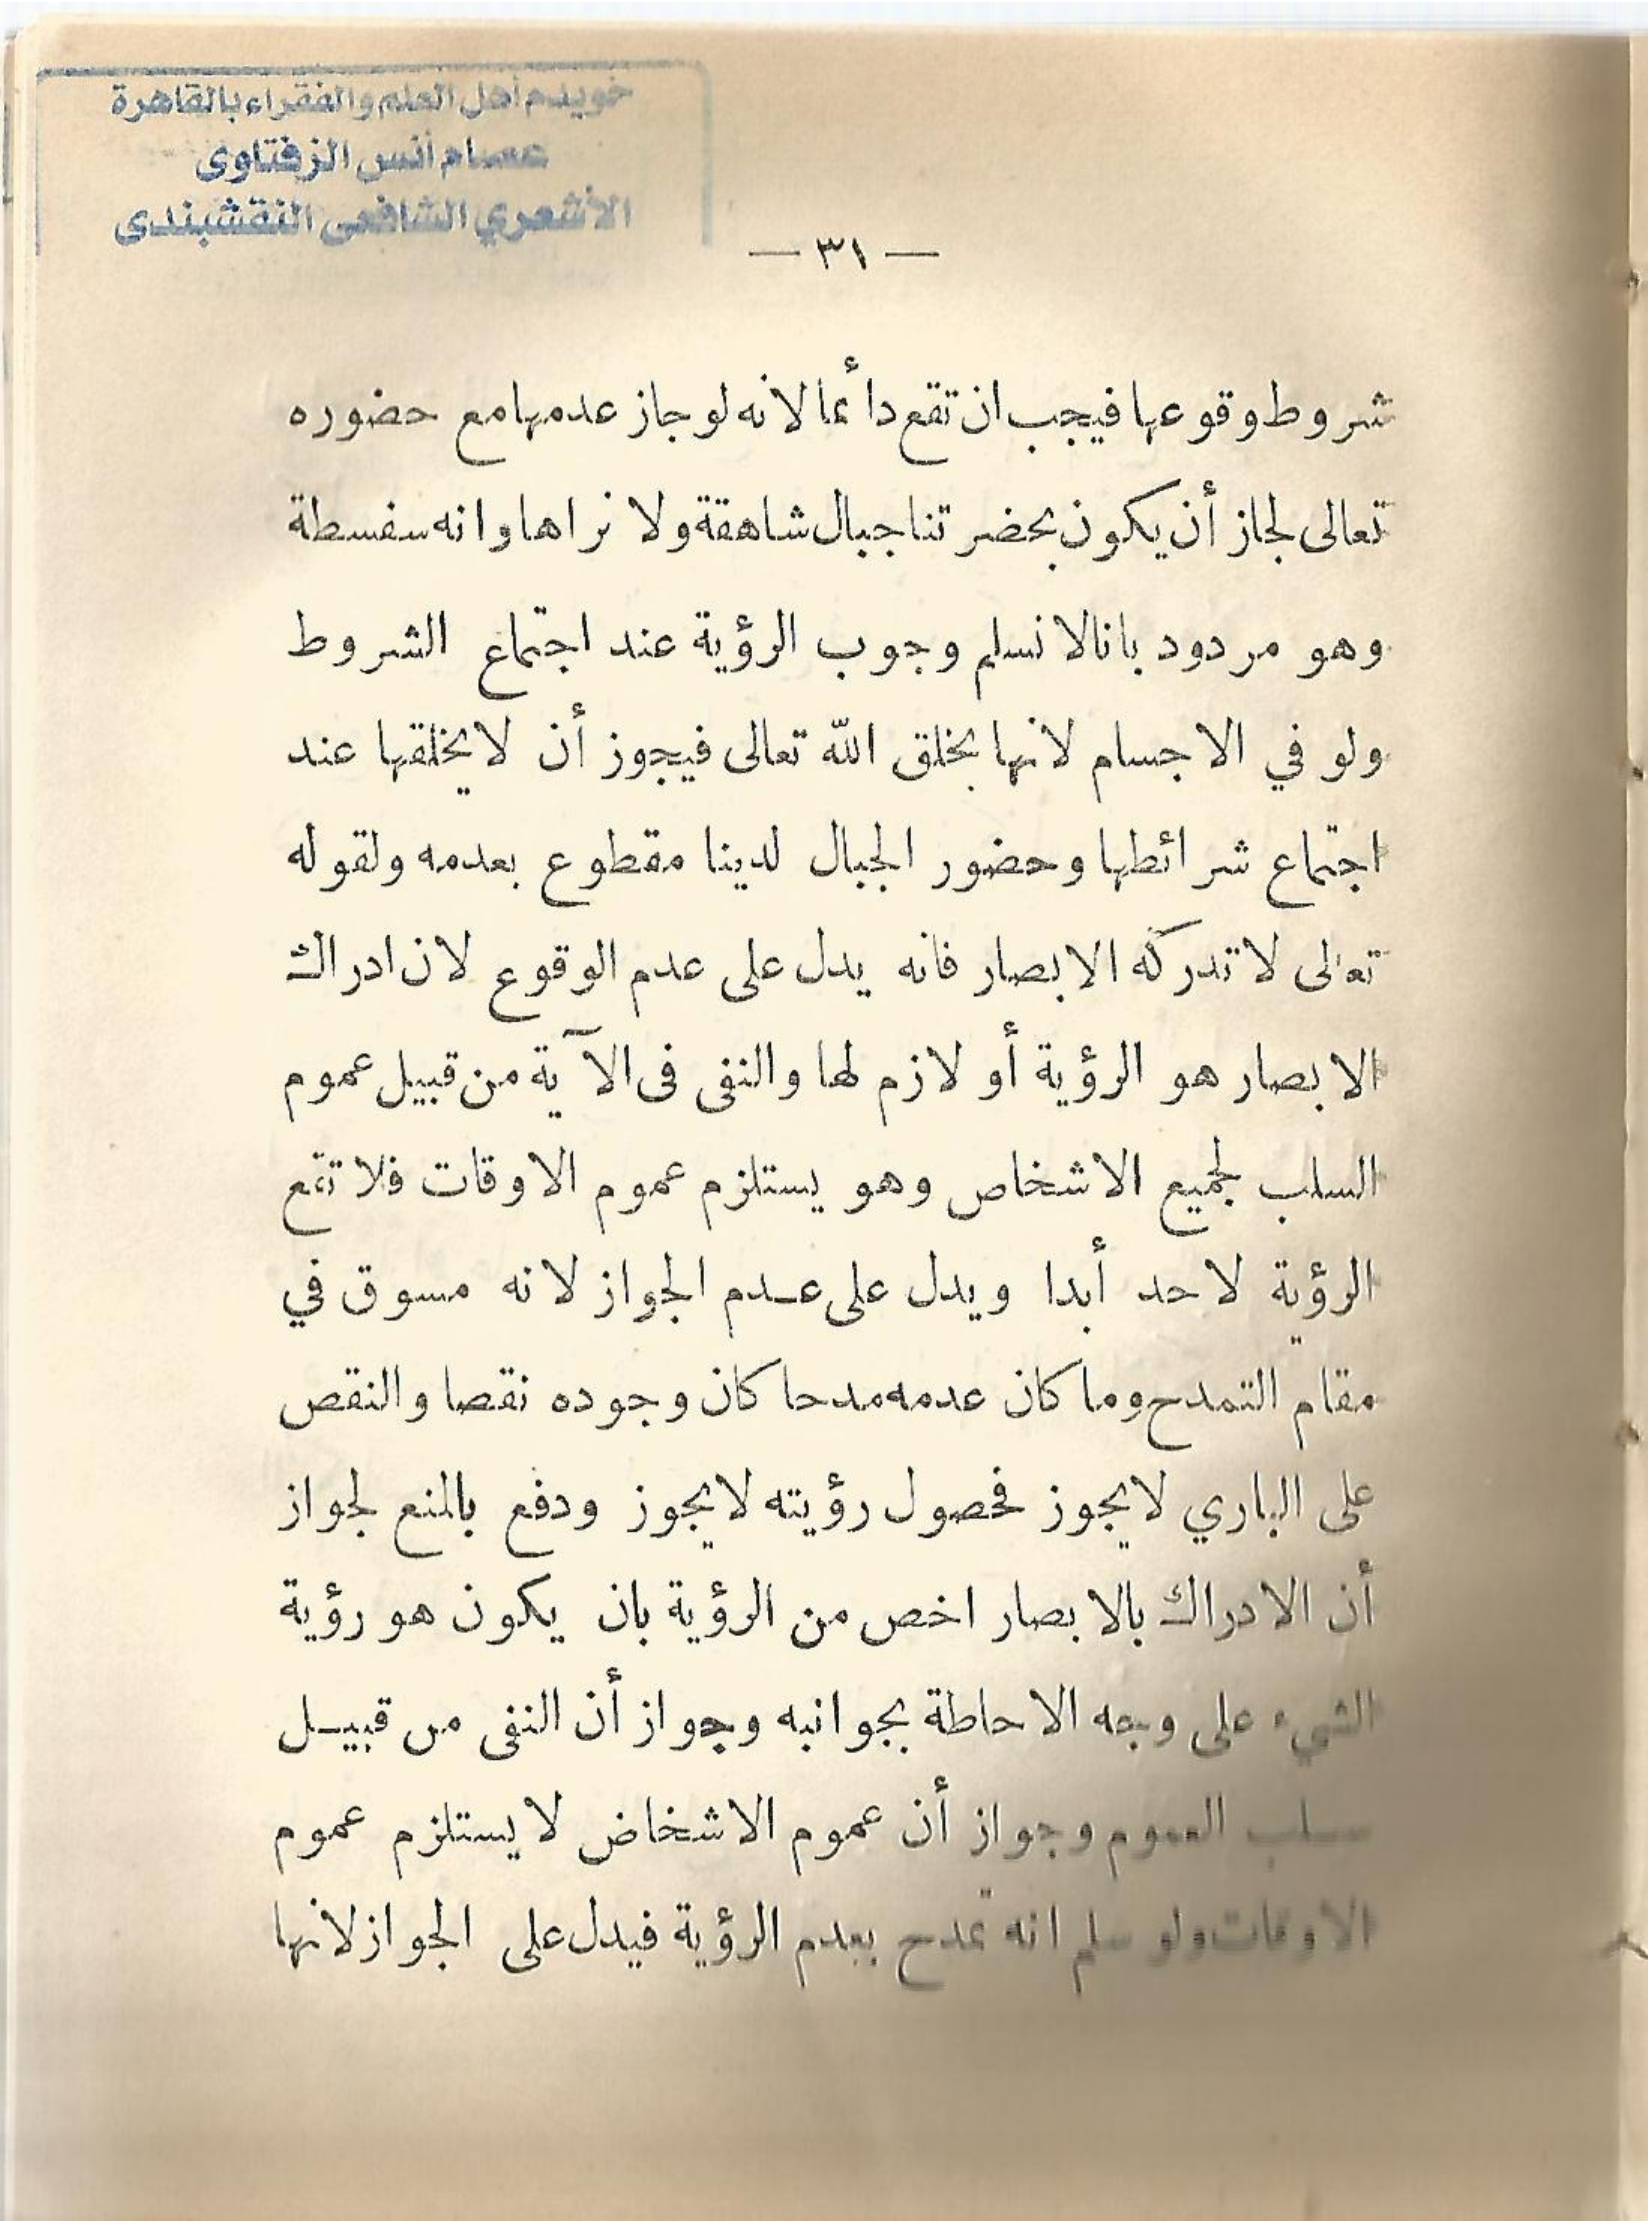 خويدم أهل العلم والفقراء بالقاهرة
عصام أنس الزفتاوى
الأشعري الشافعى النقشبندى
— ٣١ —
شروط وقوعها فيجب ان تقع دأئما لانه لو جاز عدمها مع حضوره
تعالى لجاز أن يكون بحضرتنا جبال شاهقة ولا نراها وانه سفسطة
وهو مردود بانا لا نسلم وجوب الرؤية عند اجتماع الشروط
ولو في الاجسام لانها بخلق الله تعالى فيجوز أن لا يخلقها عند
اجتماع شرائطها وحضور الجبال لدينا مقطوع بعدمه ولقوله
تعالى لا تدركه الابصار فانه يدل على عدم الوقوع لان ادراك
الابصار هو الرؤية أو لازم لها والنفى فى الآية من قبيل عموم
السلب لجميع الاشخاص وهو يستلزم عموم الاوقات فلا تقع
الرؤية لاحد أبدا ويدل على عدم الجواز لانه مسوق في
مقام التمدح وما كان عدمه مدحا كان وجوده نقصا والنقص
على الباري لا يجوز فحصول رؤيته لا يجوز ودفع بالمنع لجواز
أن الادراك بالابصار اخص من الرؤية بان يكون هو رؤية
الشيء على وجه الاحاطة بجوانبه وجواز أن النفى من قبيل
سلب العموم وجواز أن عموم الاشخاض لا يستلزم عموم
الاوقات ولو سلم انه تمدح بعدم الرؤية فيدل على الجواز لانها